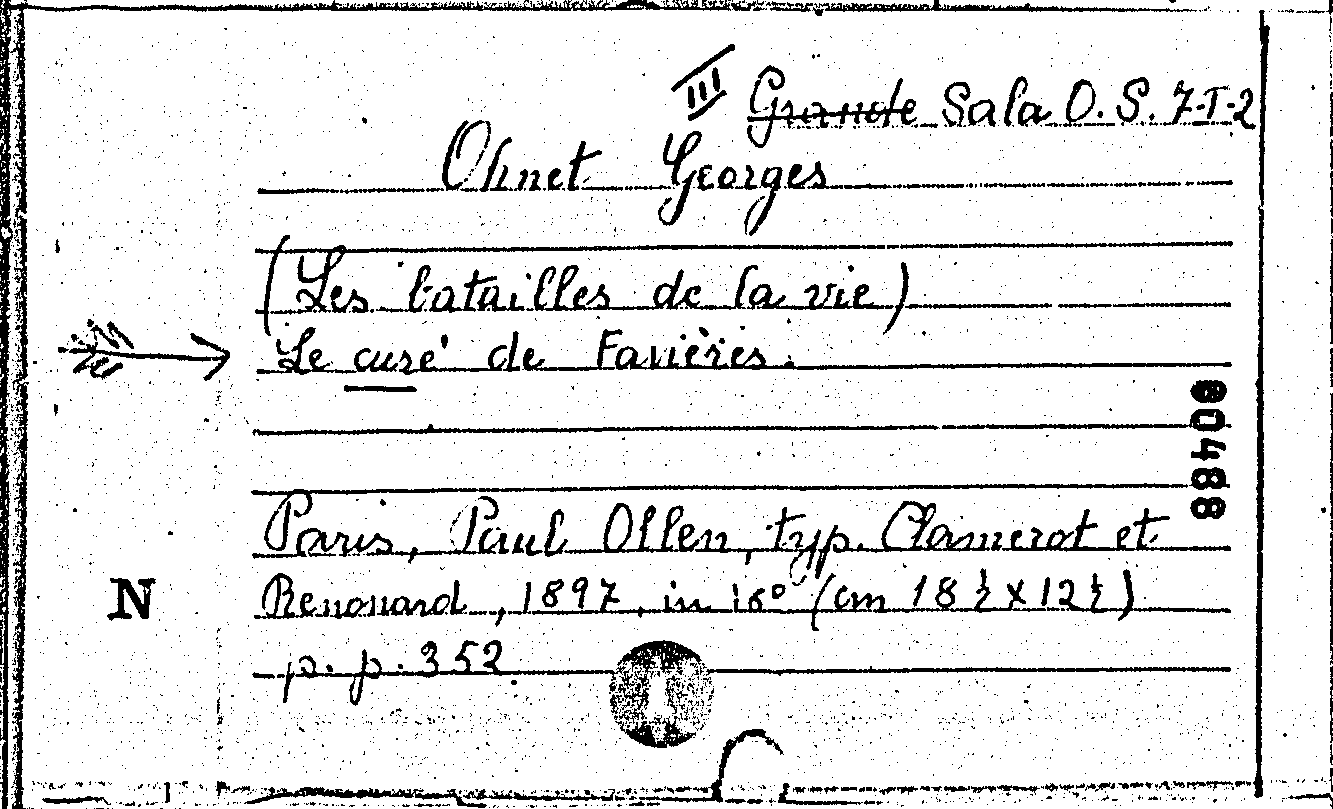 III Grande Sala O. S. 7-I-2
Ohnet Georges
(Les batailles de la vie)
Le curé de Favières.
Paris, Paul Ollen, typ. Clamerot et
Renouard, 1897, in 16° (cm 18½ x 12½)
p. p. 352
N
00488